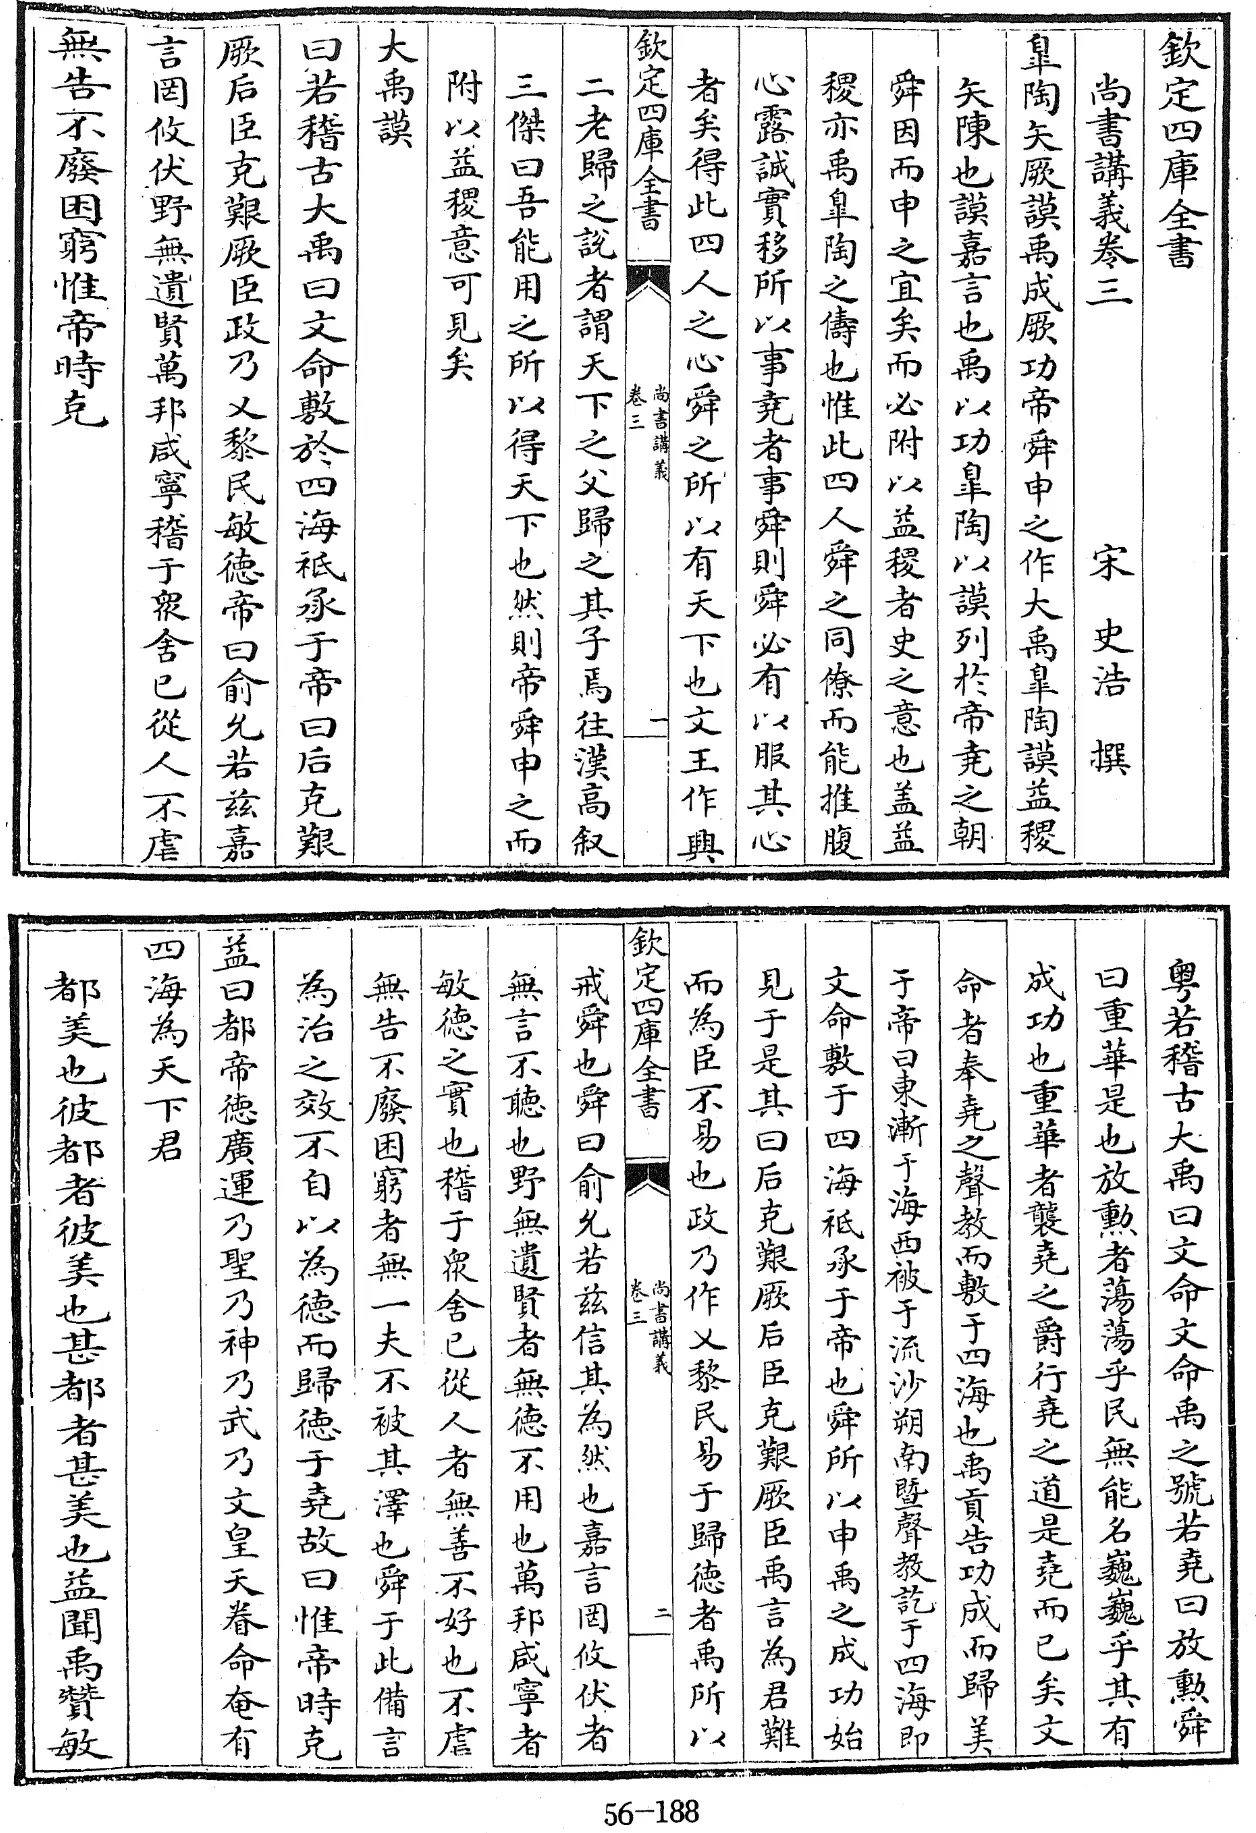 欽定四庫全書
尚書講義卷三　宋　史浩　撰
臯陶矢厥謨禹成厥功帝舜申之作大禹臯陶謨益稷
矢陳也謨嘉言也禹以功臯陶以謨列於帝堯之朝
舜因而申之宜矣而必附以益稷者史之意也蓋益
稷亦禹臯陶之儔也惟此四人舜之同僚而能推腹
心露誠實移所以事堯者事舜則舜必有以服其心
者矣得此四人之心舜之所以有天下也文王作興
欽定四庫全書
尚書講義
卷三
一
二老歸之說者謂天下之父歸之其子焉往漢高叙
三傑曰吾能用之所以得天下也然則帝舜申之而
附以益稷意可見矣
大禹謨
曰若稽古大禹曰文命敷於四海祗承于帝曰后克艱
厥后臣克艱厥臣政乃乂黎民敏德帝曰俞允若兹嘉
言罔攸伏野無遺賢萬邦咸寧稽于衆舍已從人不虐
無告不廢困窮惟帝時克
粤若稽古大禹曰文命文命禹之號若堯曰放勲舜
曰重華是也放勲者蕩蕩乎民無能名巍巍乎其有
成功也重華者襲堯之爵行堯之道是堯而已矣文
命者奉堯之聲教而敷于四海也禹貢告功成而歸美
于帝曰東漸于海西被于流沙朔南暨聲教訖于四海即
文命敷于四海祗承于帝也舜所以申禹之成功始
見于是其曰后克艱厥后臣克艱厥臣禹言為君難
而為臣不易也政乃作乂黎民易于歸德者禹所以
欽定四庫全書
尚書講義
卷三
二
戒舜也舜曰俞允若兹信其為然也嘉言罔攸伏者
無言不聽也野無遺賢者無德不用也萬邦咸寧者
敏德之實也稽于衆舍已從人者無善不好也不虐
無告不廢困窮者無一夫不被其澤也舜于此備言
為治之效不自以為德而歸德于堯故曰惟帝時克
益曰都帝德廣運乃聖乃神乃武乃文皇天眷命奄有
四海為天下君
都美也彼都者彼美也甚都者甚美也益聞禹贊敏
56-188